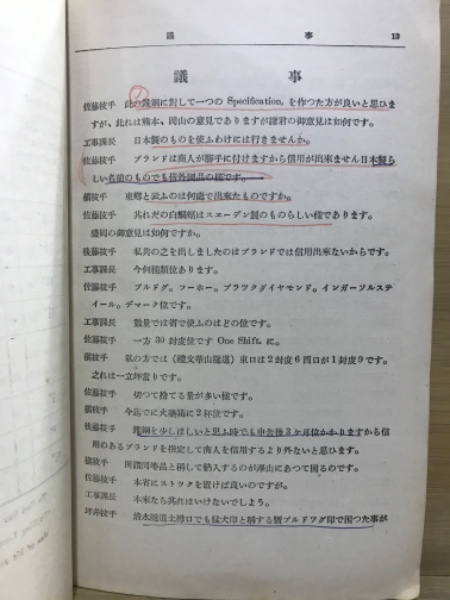 議　事　13
議　事
佐藤技手　此の鑿鋼に對して一つの Specification. を作つた方が良いと思ひま
すが、此れは熊本、岡山の意見でありますが諸君の御意見は如何です。
工事課長　日本製のものを使ふわけには行きませんか。
佐藤技手　ブランドは商人が勝手に付けますから信用が出來ません日本製ら
しい名前のものでも皆外國品の樣です。
橫技手　東郷と云ふのは何處で出來たものですか。
佐藤技手　其れだの白蝙蝠はスエーデン製のものらしい樣であります。
盛岡の御意見は如何ですか。
後藤技手　私共の之を出しましたのはブランドでは信用出來ないからです。
工事課長　今何種類位あります。
佐藤技手　ブルドグ。ソーホー。ブラツクダイヤモンド。インガーソルステ
イール。デマーク位です。
工事課長　數量では省で使ふのはどの位です。
佐藤技手　一方 30 封度位です One Shift. に。
橫技手　私の方では (禮文華山隧道) 東口は 2 封度 6 西口が 1 封度 9 です。
之れは一立坪當りです。
佐藤技手　切つて捨てる量が多い樣です。
橫技手　今迄でに火藥箱に 2 杯位です。
後藤技手　鑿鋼を少しほしいと思ふ時でも申告後 3 ケ月位かかりますから信
用のあるブランドを指定して商人を信用するより外ないと思ひます。
橫技手　所謂同等品と稱して納入するのが澤山にあつて困るのです。
佐藤技手　本省にストツクを置けば良いのですが。
工事課長　本來なら其れはいけないでしよう。
坪井技手　清水隧道土樽口でも猛犬印と稱する贋ブルドツグ印で困つた事が